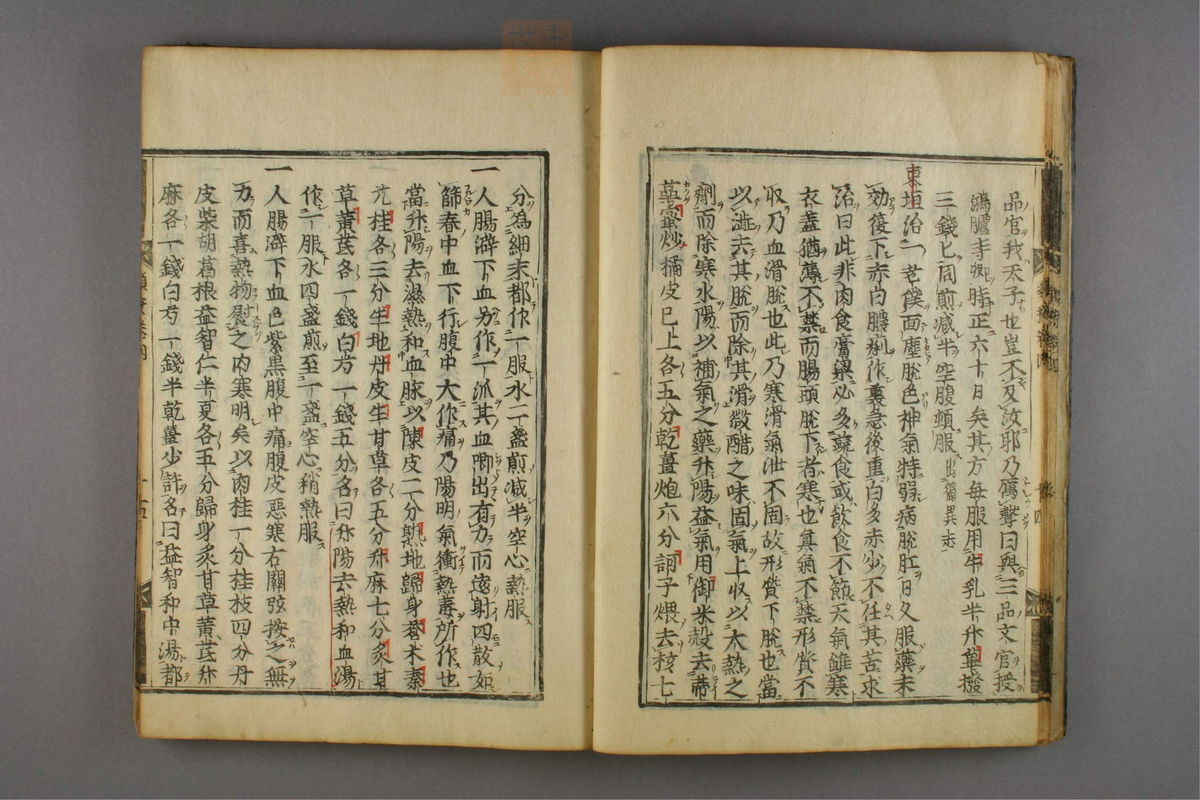 品官我天子也豈不及汝耶乃厲聲曰與三品文官授
鴻臚寺卿時正六十日矣其方每服用牛乳半升蓽撥
三錢匕同煎减半空腹頓服出獨異志
東垣治一老僕面塵脫色神氣特弱病脫肛日久服藥未
效復下赤白膿痢作裏急後重白多赤少不任其苦求
治曰此非肉食膏粱必多蔬食或飲食不節天氣雖寒
衣蓋猶薄不禁而腸頭脫下者寒也真氣不禁形質不
收乃血滑脫也此乃寒滑氣泄不固故形質下脫也當
以澁去其脫而除其滑微醋之味固氣上收以大熱之
劑而除寒水陽以補氣之藥升陽益氣用御米殼去蒂
萼蜜炒橘皮已上各五分乾薑炮六分訶子煨去核七
分為細末都作一服水二盞煎减半空心熱服
一人腸澼下血另作一派其血喞出有力而遠射四散如
篩春中血下行腹中大作痛乃陽明氣衝熱毒所作也
當升陽去濕熱和血脉以陳皮二分熟地歸身蒼朮秦
艽桂各三分生地丹皮生甘草各五分升麻七分炙甘
草黃芪各一錢白芍一錢五分名曰升陽去熱和血湯
作一服水四盞煎至一盞空心稍熱服
一人腸澼下血色紫黑腹中痛腹皮惡寒右關弦按之無
力而喜熱物熨之內寒明矣以肉桂一分桂枝四分丹
皮柴胡葛根益智仁半夏各五分歸身炙甘草黃芪升
麻各一錢白芍一錢半乾薑少許名曰益智和中湯都